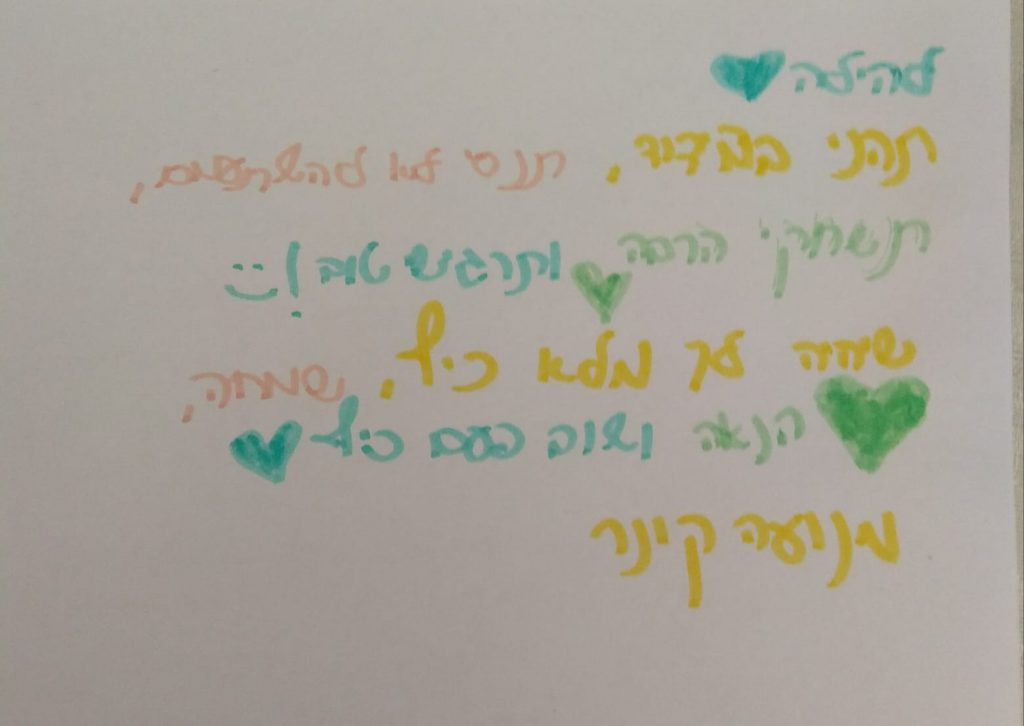 להילה
תהני במדיד, תנסי לא להשתעמם,
תשחקי הרבה ותרגיש טוב!
שיהיה לך מלא כיף, שמחה,
הנאה ושוב פעם כיף
מנועה קינר